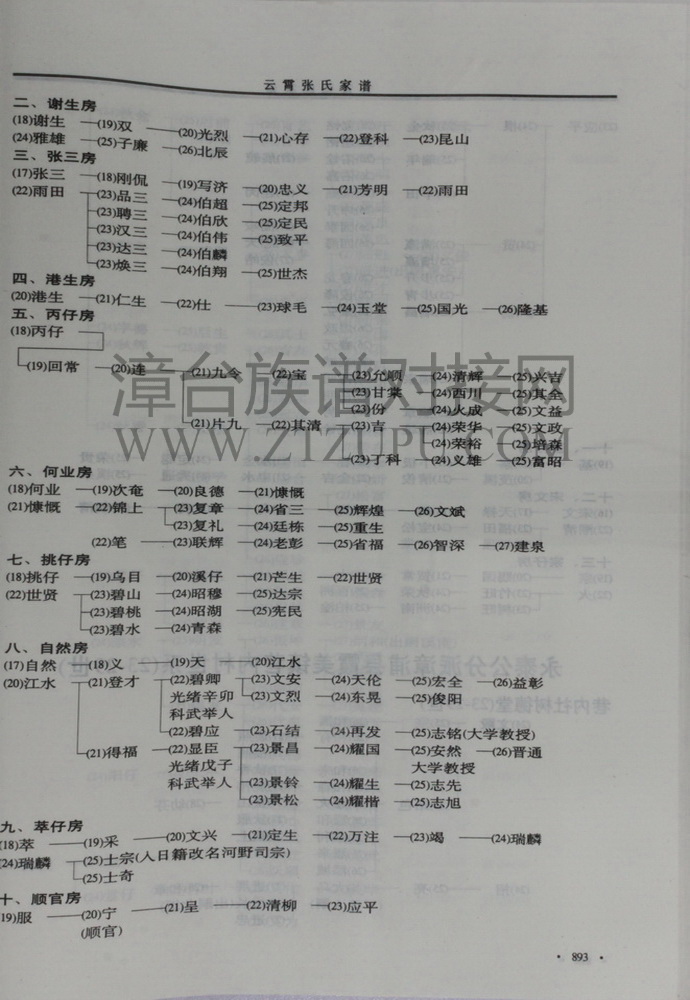 云霄张氏家谱
二、谢生房
(18)谢生—(19)双—(20)光烈—(21)心存—(22)登科—(23)昆山
(24)雅雄—(25)子廉—(26)北辰
三、张三房
(17)张三—(18)刚侃—(19)写济—(20)忠义—(21)芳明—(22)雨田
(22)雨田—(23)品三—(24)伯超—(25)定邦
(23)聘三—(24)伯欣—(25)定民
(23)汉三—(24)伯伟—(25)致平
(23)达三—(24)伯麟
(23)焕三—(24)伯翔—(25)世杰
四、港生房
(20)港生—(21)仁生—(22)仕—(23)球毛—(24)玉堂—(25)国光—(26)隆基
五、丙仔房
(18)丙仔
(19)回常—(20)连—(21)九令—(22)宝—(23)允顺—(24)清辉—(25)兴吉
(23)甘棠—(24)西川—(25)其全
(23)份—(24)火成—(25)文益
(21)片九—(22)其清—(23)吉—(24)荣华—(25)文政
(24)荣裕—(25)培森
(23)丁科—(24)义雄—(25)富昭
漳台族谱对接网
WWW.ZTZUPU.COM
六、何业房
(18)何业—(19)次奄—(20)良德—(21)慷慨
(21)慷慨—(22)锦上—(23)复章—(24)省三—(25)辉煌—(26)文斌
(23)复礼—(24)廷栋—(25)重生
(22)笔—(23)联辉—(24)老彭—(25)省福—(26)智深—(27)建泉
七、挑仔房
(18)挑仔—(19)乌目—(20)溪仔—(21)芒生—(22)世贤
(22)世贤—(23)碧山—(24)昭穆—(25)达宗
(23)碧桃—(24)昭湖—(25)宪民
(23)碧水—(24)青森
八、自然房
(17)自然—(18)义—(19)天—(20)江水
(20)江水—(21)登才—(22)碧卿—(23)文安—(24)天伦—(25)宏全—(26)益彰
光绪辛卯 (23)文烈—(24)东晃—(25)俊阳
科武举人
(22)碧应—(23)石结—(24)再发—(25)志铭(大学教授)
(21)得福—(22)显臣—(23)景昌—(24)耀国—(25)安然—(26)晋通
光绪戊子 大学教授
科武举人 (23)景铃—(24)耀生—(25)志先
(23)景松—(24)耀楷—(25)志旭
九、萃仔房
(18)萃—(19)采—(20)文兴—(21)定生—(22)万注—(23)竭—(24)瑞麟
(24)瑞麟—(25)士宗(人日籍改名河野司宗)
(25)士奇
十、顺官房
(19)服—(20)宁—(21)呈—(22)清柳—(23)应平
(顺官)
· 893 ·